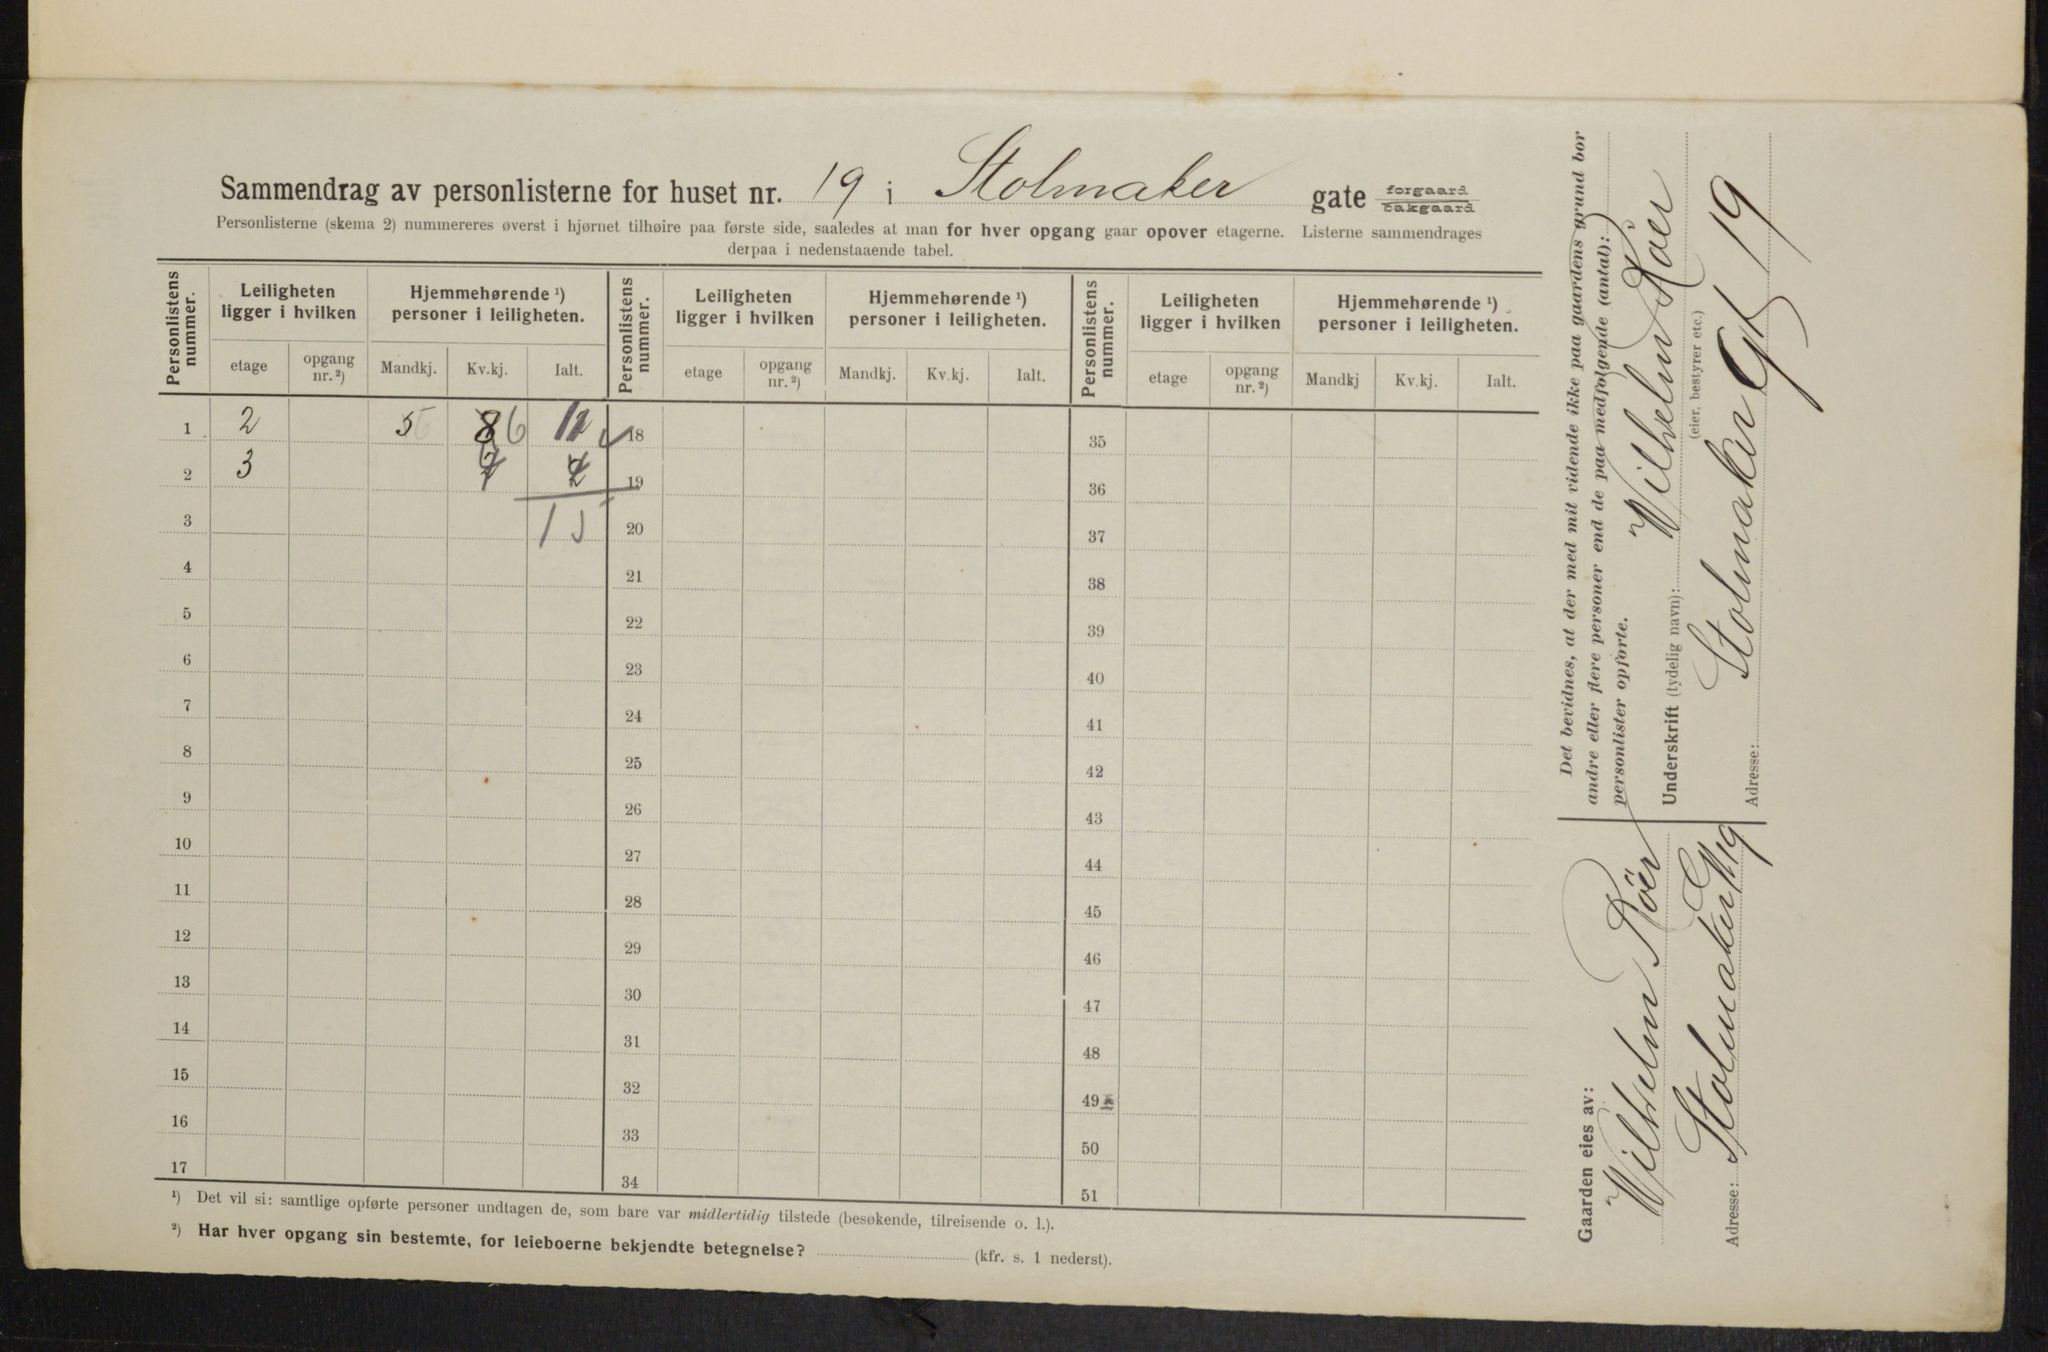 Sammendrag av personlisterne for huset nr. 19 i Stolmaker gate forgaard bakgaard
Personlisterne (skema 2) nummereres øverst i hjørnet tilhøire paa første side, saaledes at man for hver opgang gaar opover etagerne. Listerne sammendrages
derpaa i nedenstaaende tabel.
Personlistens nummer. Leiligheten ligger i hvilken Hjemmehørende ¹) personer i leiligheten. Personlistens nummer. Leiligheten ligger i hvilken Hjemmehørende ¹) personer i leiligheten. Personlistens nummer. Leiligheten ligger i hvilken Hjemmehørende ¹) personer i leiligheten.
etage opgang nr. ²) Mandkj. Kv.kj. Ialt. etage opgang nr. ²) Mandkj. Kv.kj. Ialt. etage opgang nr. ²) Mandkj Kv.kj. Ialt.
1 2 5 6 18 35
2 3 19 36
3 20 37
4 21 38
5 22 39
6 23 40
7 24 41
8 25 42
9 26 43
10 27 44
11 28 45
12 29 46
13 30 47
14 31 48
15 32 49
16 33 50
17 34 51
¹) Det vil si: samtlige opførte personer undtagen de, som bare var midlertidig tilstede (besøkende, tilreisende o. l.).
²) Har hver opgang sin bestemte, for leieboerne bekjendte betegnelse? (kfr. s. 1 nederst).
Det bevidnes, at der med mit vidende ikke paa gaardens grund bor
andre eller flere personer end de paa medfølgende (antal):
personlister opførte.
Underskrift (tydelig navn): Wilhelm Röer
(eier, bestyrer etc.)
Adresse: Stolmaker Gt 19
Gaarden eies av:
Wilhelm Röer
Adresse: Stolmaker 19